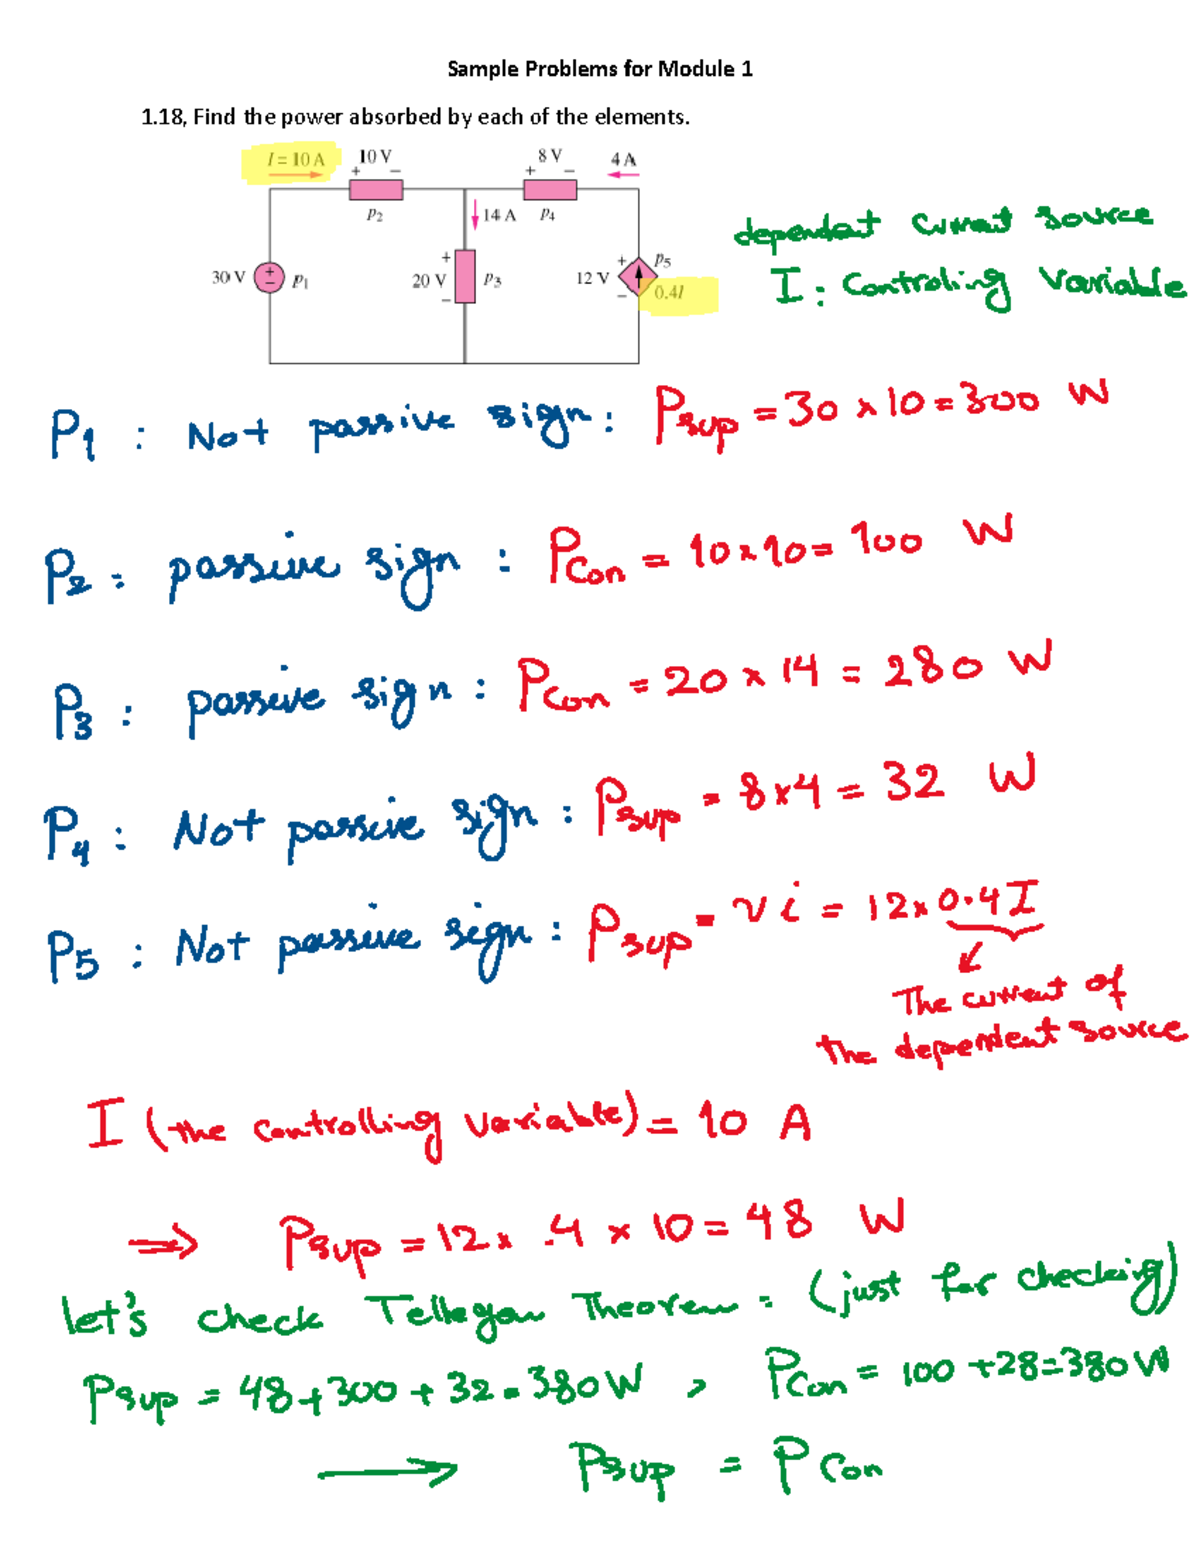 Sample Problems for Module 1
1.18, Find the power absorbed by each of the elements.
I = 10 A 10 V 8 V 4 A
+ − + −
p2 14 A p4
dependent current source
+ + p5
30 V + − p1 20 V p3 12 V
I : Controling Variable
− − 0.4I
P1 : Not passive sign : Psup = 30 x 10 = 300 W
P2 : passive sign : Pcon = 10 x 10 = 100 W
P3 : passive sign : Pcon = 20 x 14 = 280 W
P4 : Not passive sign : Psup = 8 x 4 = 32 W
P5 : Not passive sign : Psup = v i = 12 x 0.4 I
The current of
the dependent source
I (the controlling variable) = 10 A
⇒ Psup = 12 x .4 x 10 = 48 W
let's check Tellegan Theorem : (just for checking)
Psup = 48 + 300 + 32 = 380 W , Pcon = 100 + 28 = 380 W
⟶ Psup = Pcon